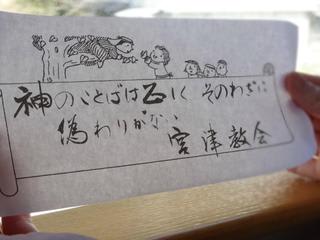 神のことばは正しく そのわざに
偽わりがない
宮津教会